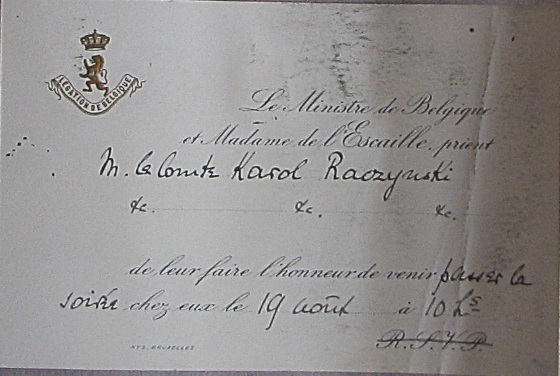 LÉGATION DE BELGIQUE
Le Ministre de Belgique
et Madame de l'Escaille, prient
M. le Comte Karol Raczynski
&c. &c. &c.
de leur faire l'honneur de venir passer la
soirée chez eux le 19 août à 10 hs
R.S.V.P.
BRUXELLES